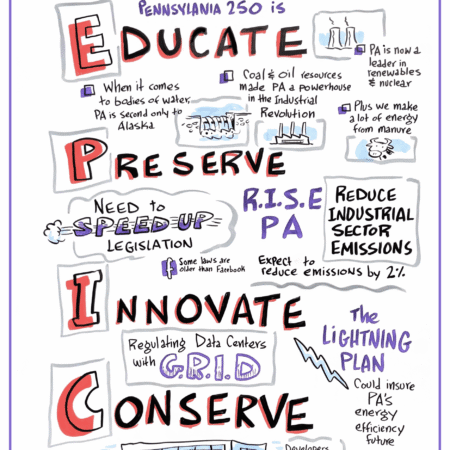 PENNSYLVANIA 250 is
EDUCATE
When it comes
to bodies of water,
PA is second only to
Alaska
Coal & oil resources
made PA a powerhouse
in the Industrial
Revolution
PA is now a
leader in
renewables
& nuclear
Plus we make
a lot of energy
from manure
PRESERVE
NEED to
SPEED UP
LEGISLATION
f Some laws are
older than Facebook
R.I.S.E
PA
REDUCE
INDUSTRIAL
SECTOR
EMISSIONS
Expect to
reduce emissions by 2%
INNOVATE
Regulating Data Centers
with G.R.I.D
The
LIGHTNING
PLAN
Could insure
PA's
energy
efficiency
future
CONSERVE
Developers